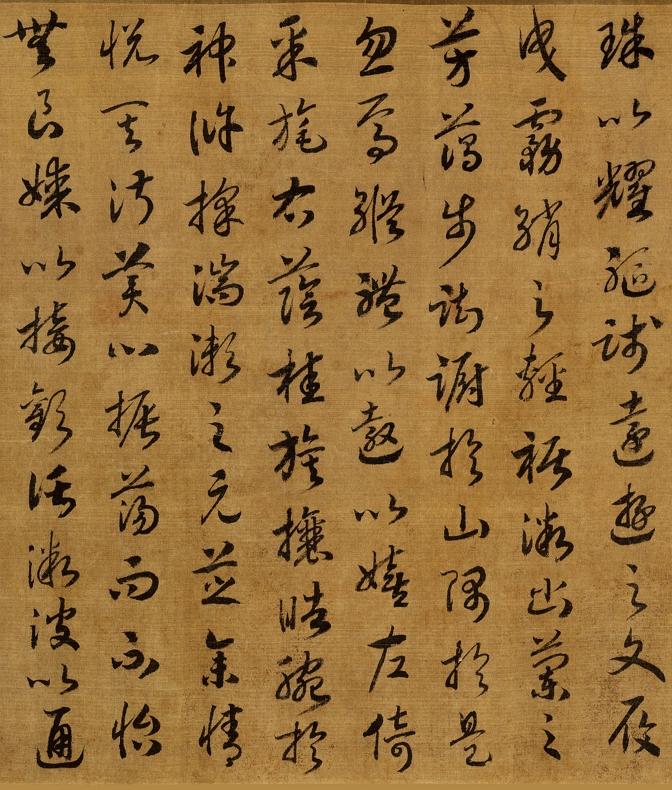 珠以耀軀踐遠遊之文履
曳霧綃之輕裾微幽蘭之
芳藹步踟躕於山隅於是
忽焉縱體以遨以嬉左倚
采旄右蔭桂旗攘皓腕於
神滸採湍瀨之元芝余情
悅其淑美心振蕩而不怡
無良媒以接歡託微波以通